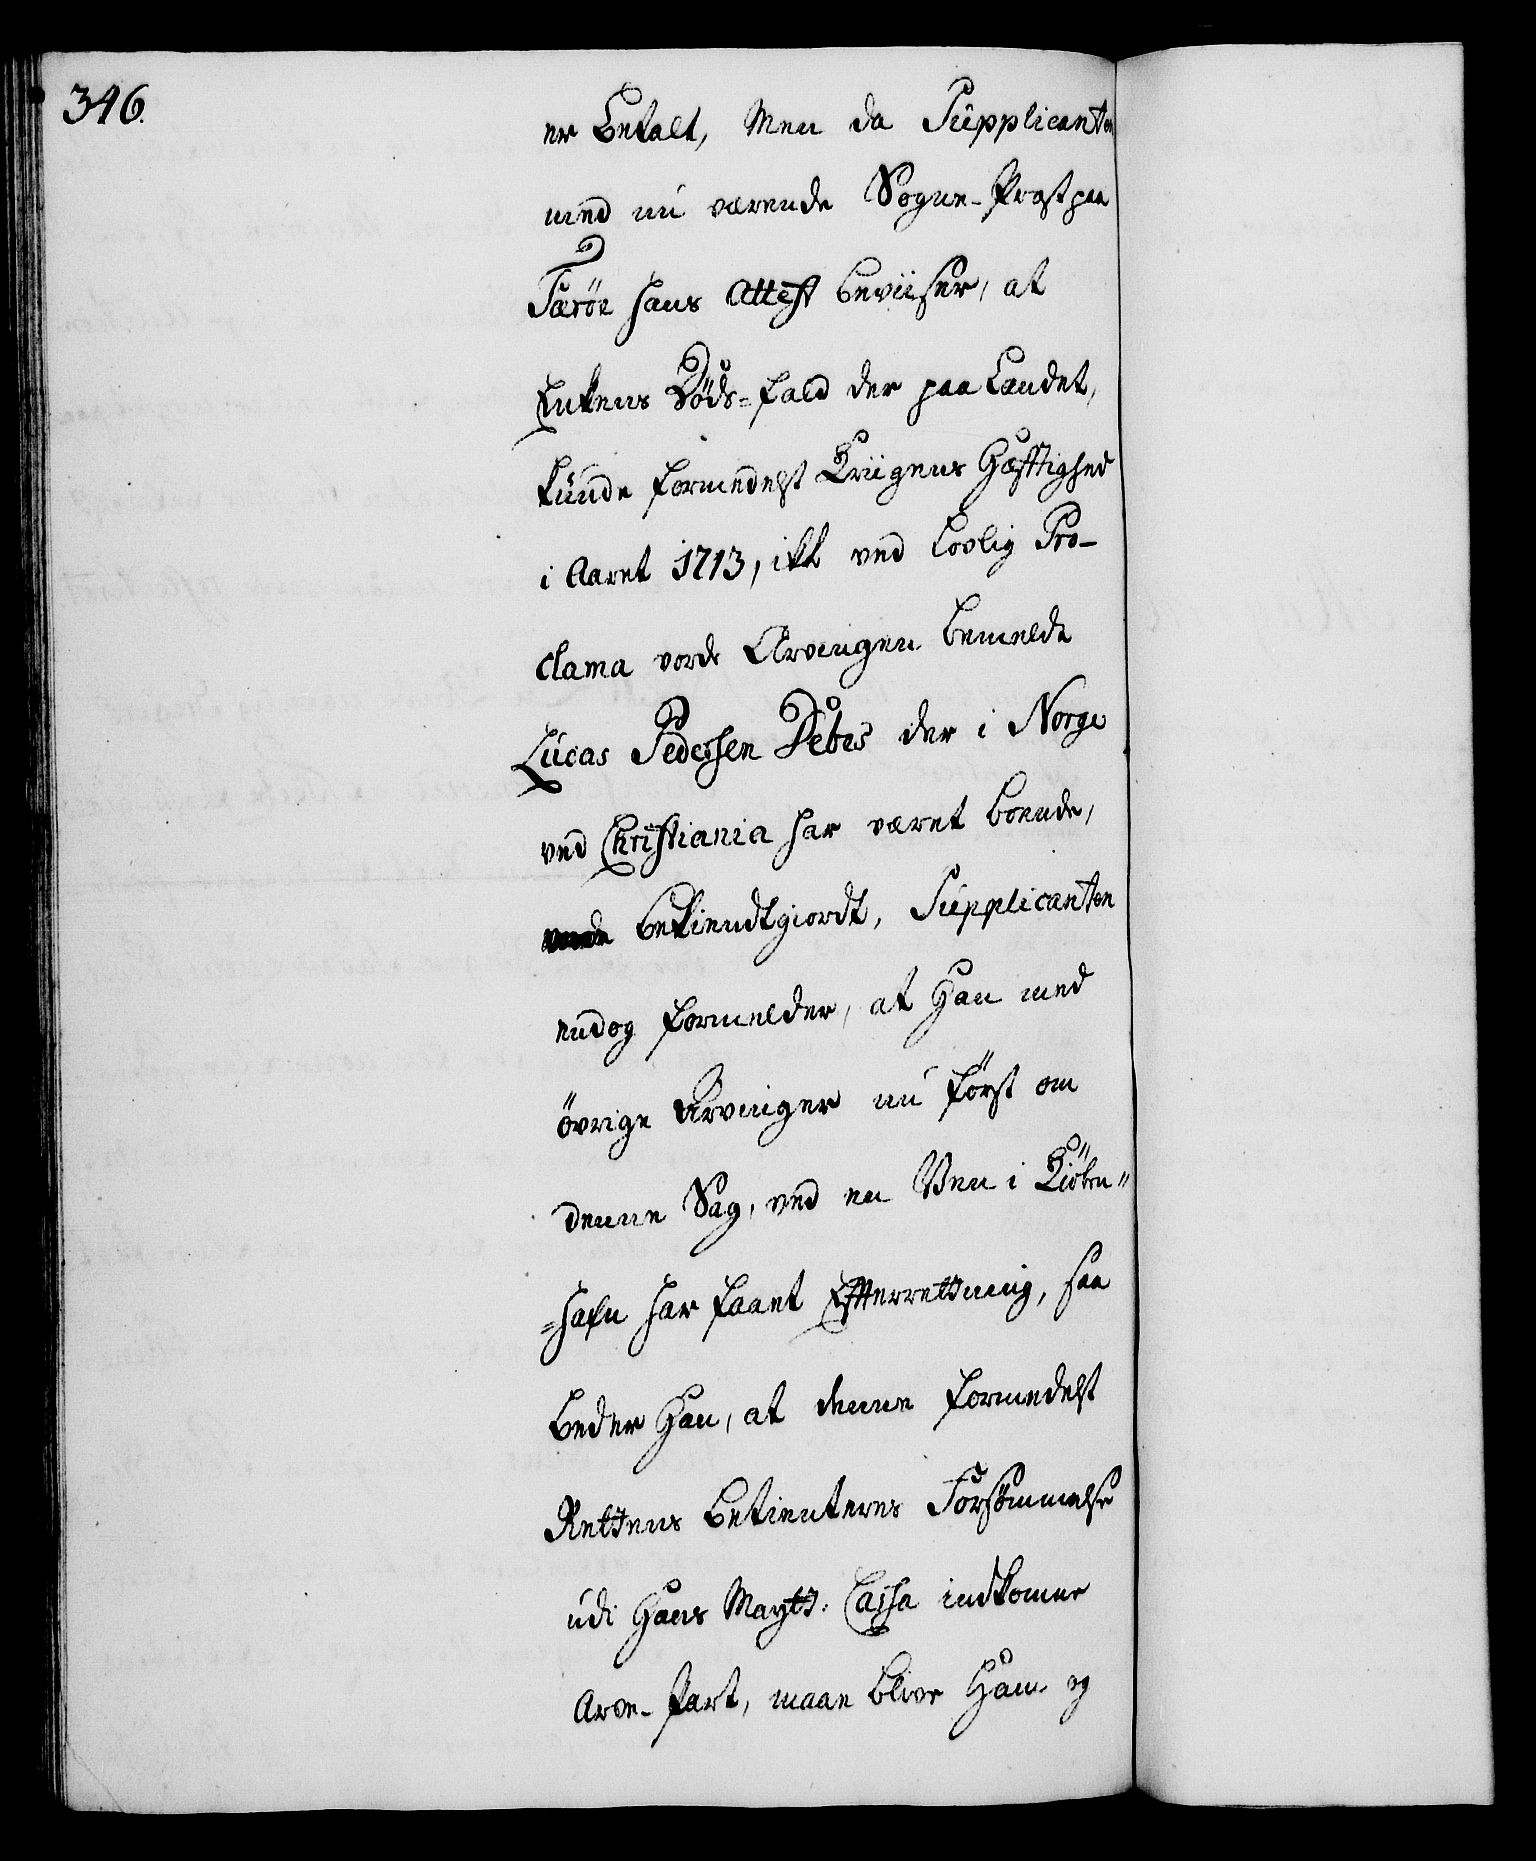 346.
er betalt, Men da Supplicanten
med nu værende Sogne-Prost paa
Færöe hans Attest beviiser, at
Enkens Döds=fald der paa Landet,
kunde formedelst Kriigens Hæfttighed
i Aaret 1713, ikk ved lovlig Pro-
clama vorde Arvingen bemelde
Lucas Pedersen Debes der i Norge
ved Christiania har været boende,
bekiendtgiordt, Supplicanten
endog formelder, at Han med
övrige Arvinger nu först om
denne Sag, ved en Ven i Kiöben"
=hafn har faaet Effterrettning, saa
beder Han, at denne formedelst
Rettens betienteres Forsömmelse
udi Hans Maytt: Cassa indkomne
Arve-Part, maae blive Ham og